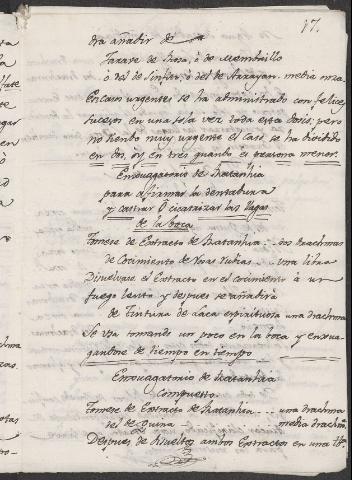 17.
dra añadir de
Jarave de Rosa, ò de Membrillo
ò del de Sinfito, ò del de Arrayan. media onza
En casos urgentes se ha administrado con felices
sucesos en una sola vez toda esta dosis, pero
no siendo muy urgente el caso se ha dividido
en dos, ò en tres quando es persona menor.
Enxuagatorio de Ratanhia
para afirmar la dentadura
y curar ò cicatrizar las llagas
de la boca
Tomese de Extracto de Ratanhia .. dos drachmas
de Cocimiento de Rosas rubias ... una libra
Disuelvase el Extracto en el cocimiento à un
fuego lento, y despues se añadirà
de Tintura de Laca espirituosa una drachma
Se usa tomando un poco en la boca y enxua-
gandose de tiempo en tiempo
Enxuagatorio de Ratanhia
Compuesto.
Tomese de Extracto de Ratanhia ... una drachma
del de Quina ... media drachma
Despues de disueltos ambos Extractos en una lb.